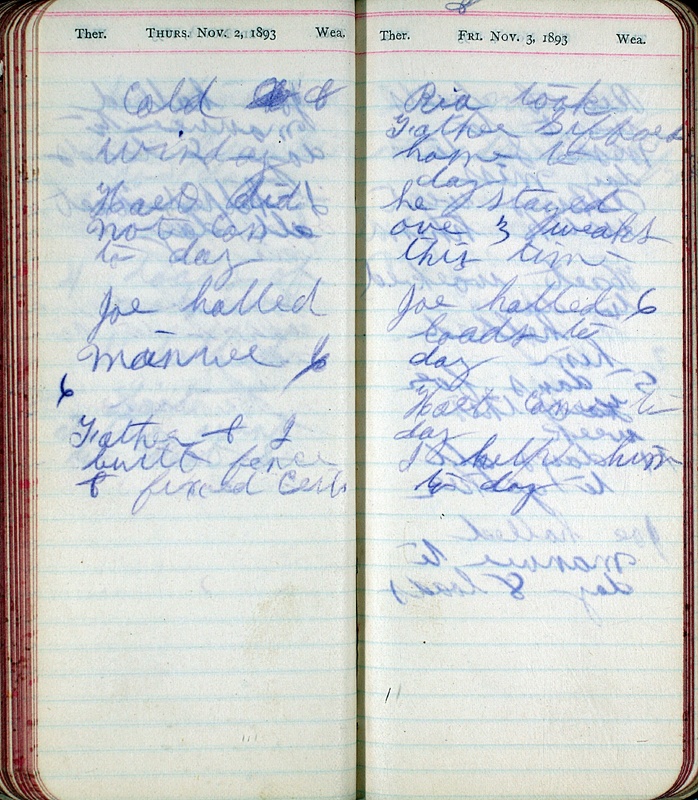 Ther. THURS. NOV. 2, 1893 Wea.
Cold &
windy
did
not Come
to day
Joe halled
manure 6
6
Father & I
built fence
& fixed
Ther. FRI. NOV. 3, 1893 Wea.
Ria took
Father
home to
day
he stayed
ove 3 weaks
this tim
Joe halled 6
loads to
day
Come to
day
I help him
to day